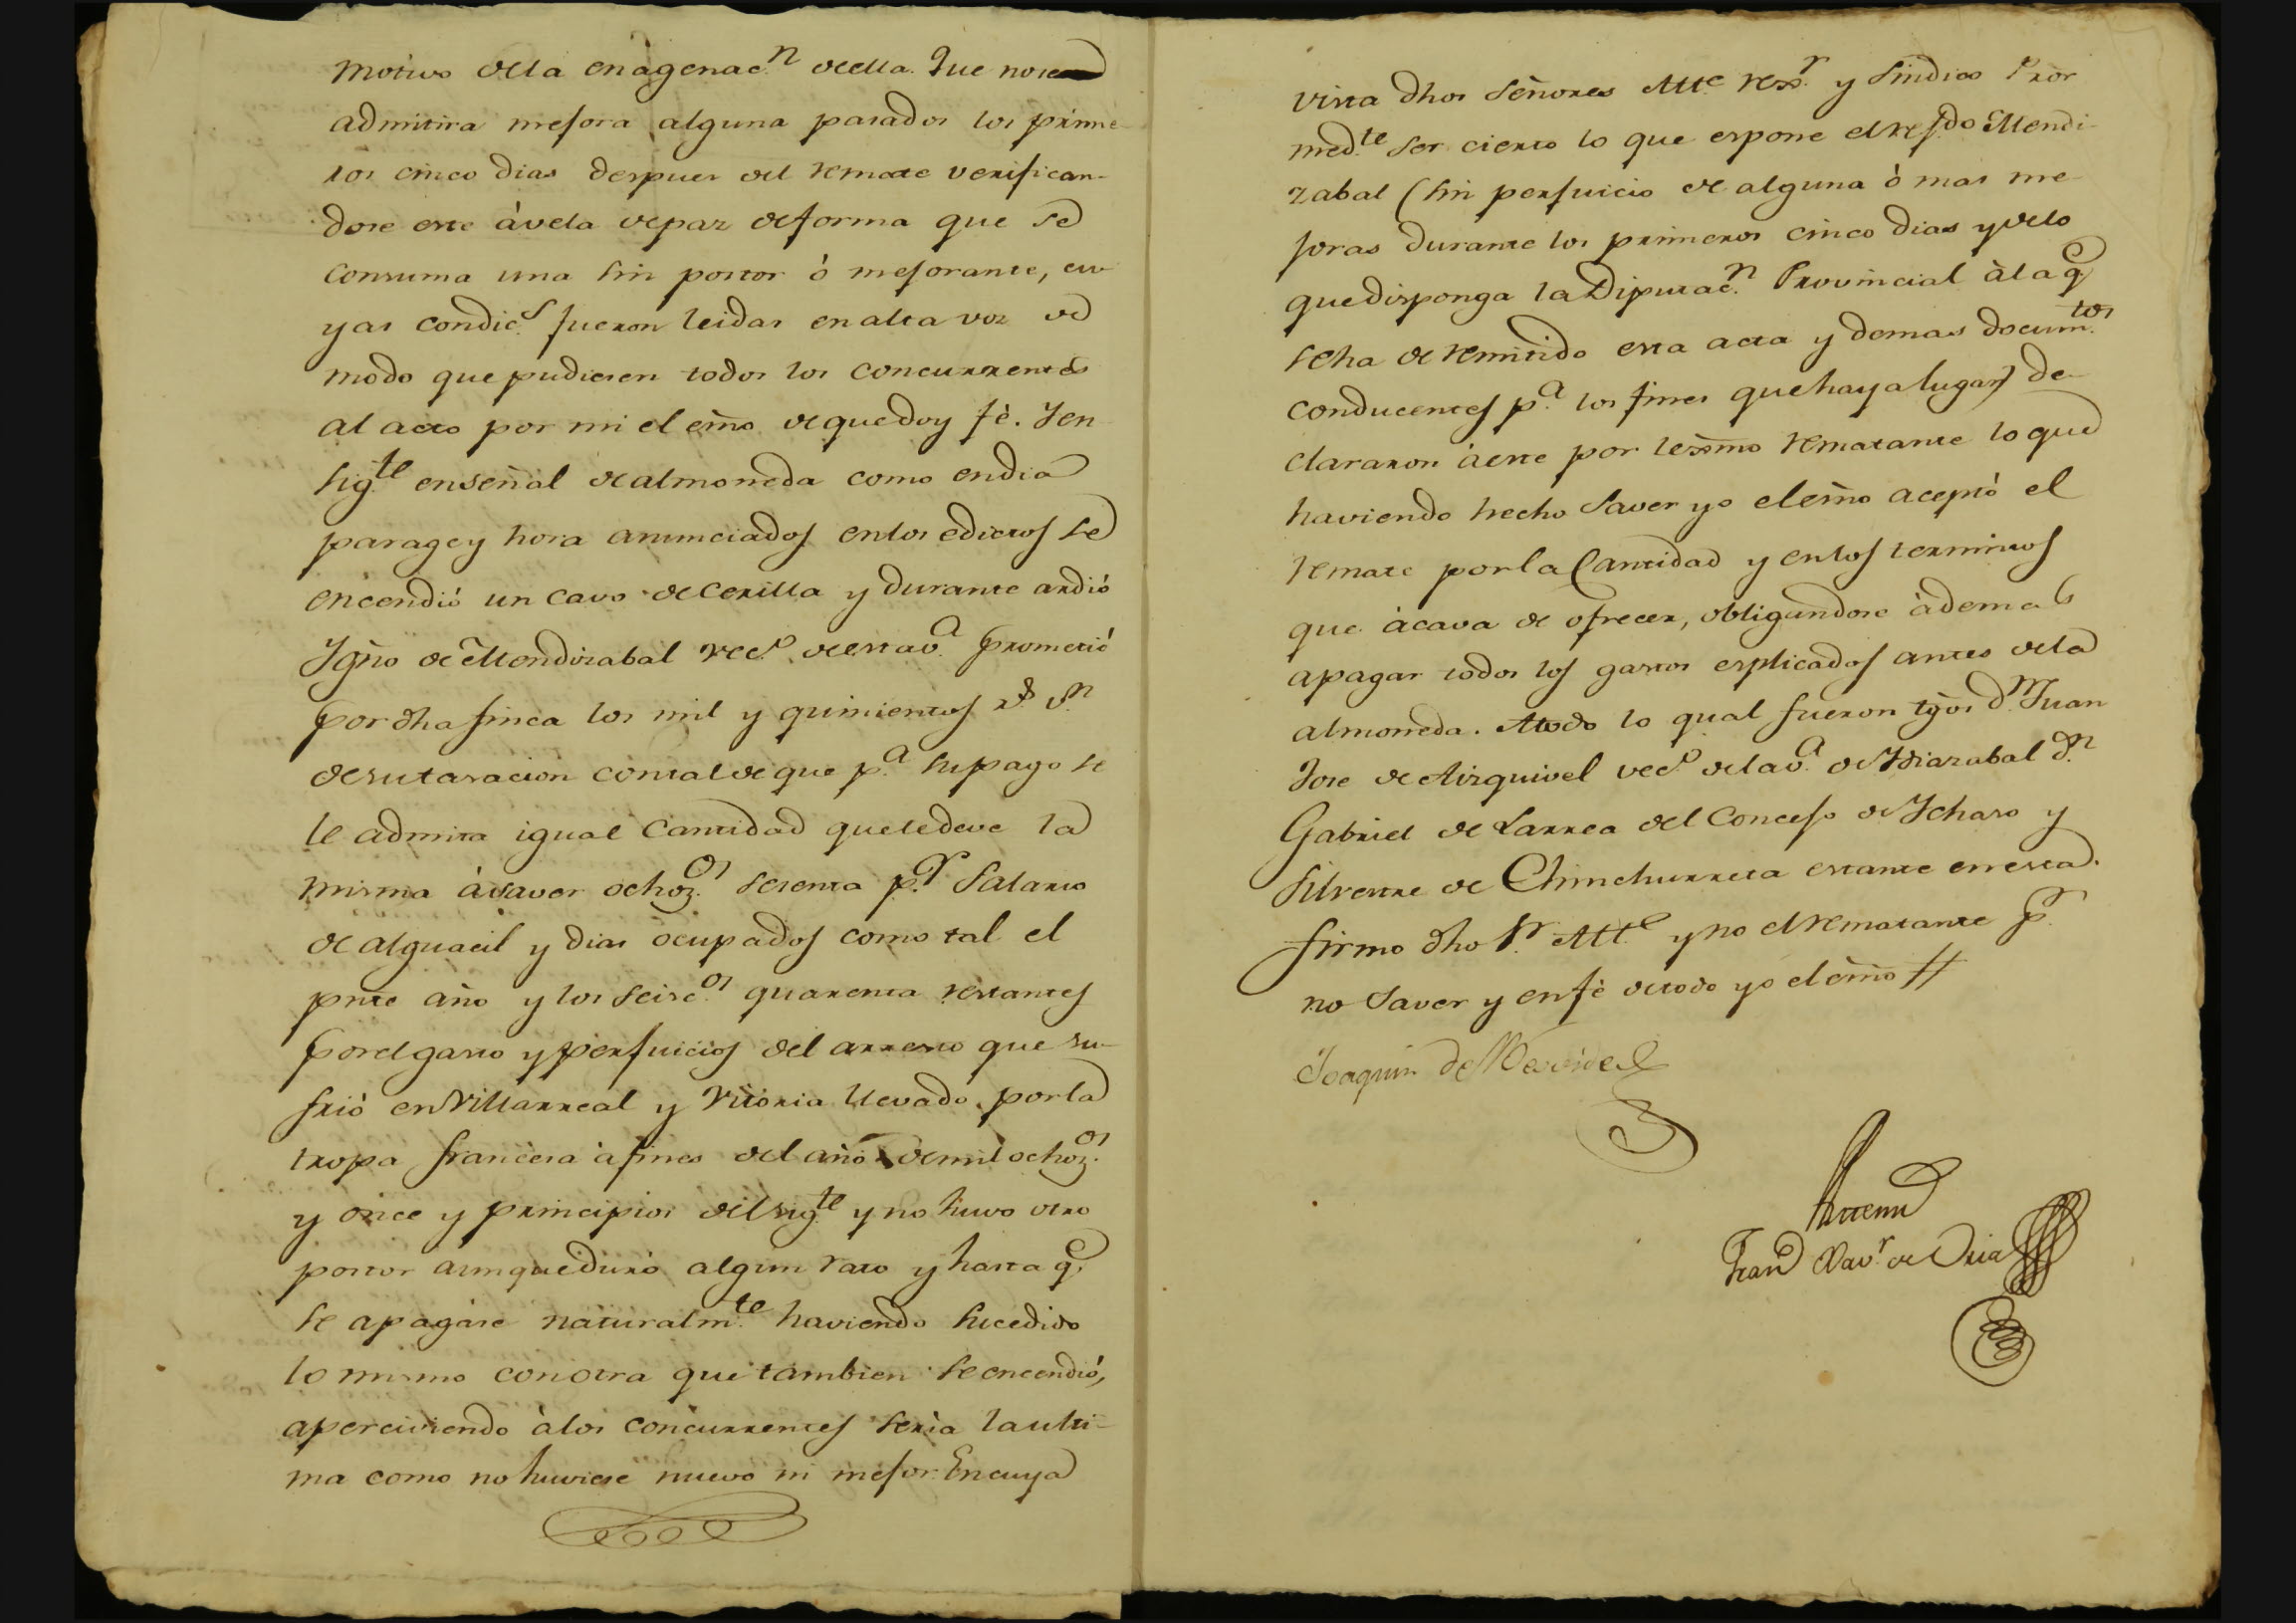 motivo dela enagenac.n deella. Que nose
admitira mejora alguna pasados los prime-
ros cinco dias despues del remate verifican-
dose este àvela depaz deforma que se
consuma una sin postor ò mejorante, cu-
yas condic.s fueron leidas enalta voz de
modo que pudiesen todos los concurrentes
al acto por mi el esno dequedoy fè. Yen
sig.te enseñal dealmoneda como endia
parage y hora anunciados enlos edictos se
encendió un cavo decerilla y durante ardió
Ygño de Mendizabal vec.o deestav.a prometió
por dha finca los mil y quinientos r.s v.n
desutasacion contal de que p.a supago se
le admita igual cantidad queledeve la
misma àsaver ochoz.os sesenta p.r salario
de alguacil y dias ocupados como tal el
pnte año y los seisc.os quarenta restantes
porelgasto y perjuicios del arresto que su-
frió en Villarreal y Vitoria llevado porla
tropa francesa àfines del año demil ochoz.os
y once y principios delsig.te y no huvo otro
postor aunqueduró algun rato y hasta q.e
se apagáse naturalm.te haviendo sucedido
lo mismo conotra que tambien se encendió,
aperciviendo àlos concurrentes sería laulti-
ma como no huviese nuevo ni mejor. Encuya
vista dhos Señores Alc.e rex.r y Sindico Pror
med.te ser cierto lo que espone elref.do Mendi-
zabal (sin perjuicio de alguna ò mas me-
joras durante los primeros cinco dias ydelo
quedisponga la Diputac.n Provincial àla q.e
seha de remitido esta acta y demas docum.tos
conducentes p.a los fines que haya lugar) de-
clararon àeste por lexmo rematante loque
haviendo hecho saver yo elesno aceptó el
remate porla Cantidad y enlos terminos
que àcava de ofrecer, obligandose àdemas
apagar todos los gastos esplicados antes dela
almoneda. Atodo lo qual fueron tgos d.n Juan
Jose de Aizquivel vec.o delav.a de Ydiazabal d.n
Gabriel de Larrea del Concejo de Ychaso y
Silvestre de Chinchurreta estante enesta.
firmo dho S.r Alc.e y no elrematante p.r
no saver y enfè detodo yo elesno //
Joaquin de
Antemi
Fran.co Xav.r de Oria